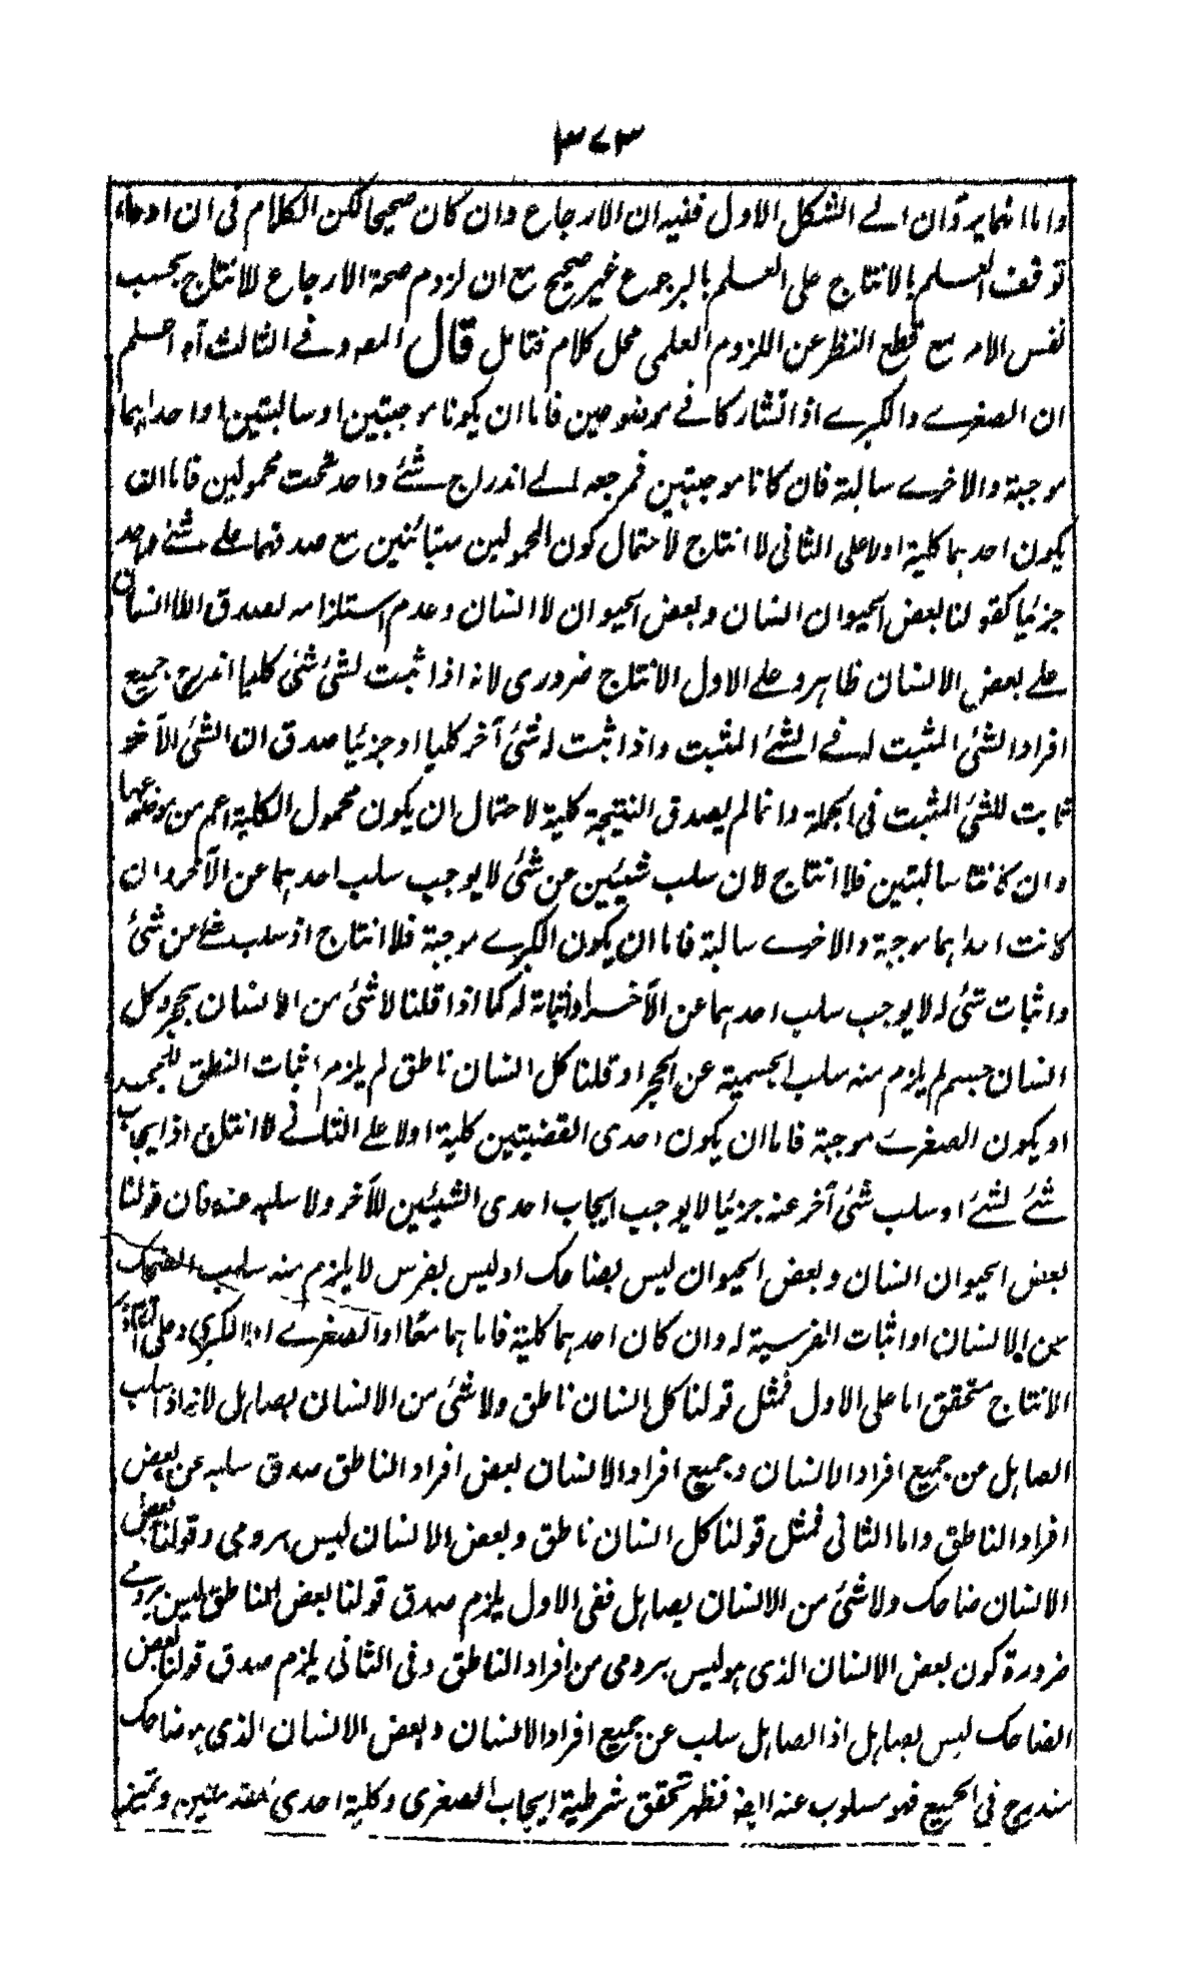 ٣٧٣
واما انهما يردان الے الشكل الاول ففيه ان الارجاع وان كان صحيحا لكن الكلام فى ان ادعاء
توقف العلم بالانتاج على العلم بالرجوع غير صحيح مع ان لزوم صحة الارجاع للانتاج بحسب
نفس الامر مع قطع النظر عن اللزوم العلمى محل كلام فتامل قال المص وفے الثالث آه اعلم
ان الصغرے والكبرے اذا تشاركا فے موضوعين فاما ان يكونا موجبتين او سالبتين او احداہما
موجبة والاخرے سالبة فان كانا موجبتين فمرجعه الے اندراج شئ واحد تحت محمولين فاما ان
يكون احدہما كلية اولا على الثانى لا انتاج لاحتمال كون المحمولين متبائنين مع صدقهما علے شئ واحد
جزئيا كقولنا بعض الحيوان انسان وبعض الحيوان لا انسان وعدم استلزامه لصدق اللاانسان
علے بعض الانسان ظاہر وعلے الاول الانتاج ضرورى لانه اذا ثبت لشئ شئ كليا اندرج جميع
افراد الشئ المثبت له فے الشئ المثبت واذا ثبت له شئ آخر كليا او جزئيا صدق ان الشئ الآخر
ثابت للشئ المثبت فى الجملة وانما لم يصدق النتيجة كلية لاحتمال ان يكون محمول الكلية اعم من موضوعها
وان كانتا سالبتين فلا انتاج لان سلب شيئين عن شئ لا يوجب سلب احدہما عن الآخر وان
كانت احداہما موجبة والاخرے سالبة فاما ان يكون الكبرے موجبة فلا انتاج اذ سلب شئ من شئ
واثبات شئ له لا يوجب سلب احدہما عن الآخر او اثباته له كما اذا قلنا لا شئ من الانسان بحجر وكل
انسان جسم لم يلزم منه سلب الجسمية عن الحجر او قلنا كل انسان ناطق لم يلزم اثبات النطق للحجر
او يكون الصغرے موجبة فاما ان يكون احدى القضيتين كلية اولا علے الثانے لا انتاج اذ ايجاب
شئ لشئ او سلب شئ آخر عنه جزئيا لا يوجب ايجاب احدى الشيئين للآخر ولا سلبه عنه فان قولنا
بعض الحيوان انسان وبعض الحيوان ليس بضاحك او ليس بفرس لا يلزم منه سلب الضحك
من الانسان او اثبات الفرسية له وان كان احدہما كلية فاما ہما معًا او الصغرے او الكبرى وعلى
الانتاج متحقق اما على الاول فمثل قولنا كل انسان ناطق ولا شئ من الانسان بصاہل لانه اذا سلب
الصاہل من جميع افراد الانسان وجميع افراد الانسان بعض افراد الناطق صدق سلبه عن بعض
افراد الناطق واما الثانى فمثل قولنا كل انسان ناطق وبعض الانسان ليس برومى وقولنا بعض
الانسان ضاحك ولا شئ من الانسان بصاہل ففى الاول يلزم صدق قولنا بعض الناطق ليس برومے
ضرورة كون بعض الانسان الذى ہو ليس برومى من افراد الناطق وفى الثانى يلزم صدق قولنا بعض
الضاحك ليس بصاہل اذ الصاہل سلب عن جميع افراد الانسان وبعض الانسان الذى ہو ضاحك
مندرج فى الجميع فهو مسلوب عنه ايضا فظهر تحقق شرطية ايجاب الصغرى وكلية احدى